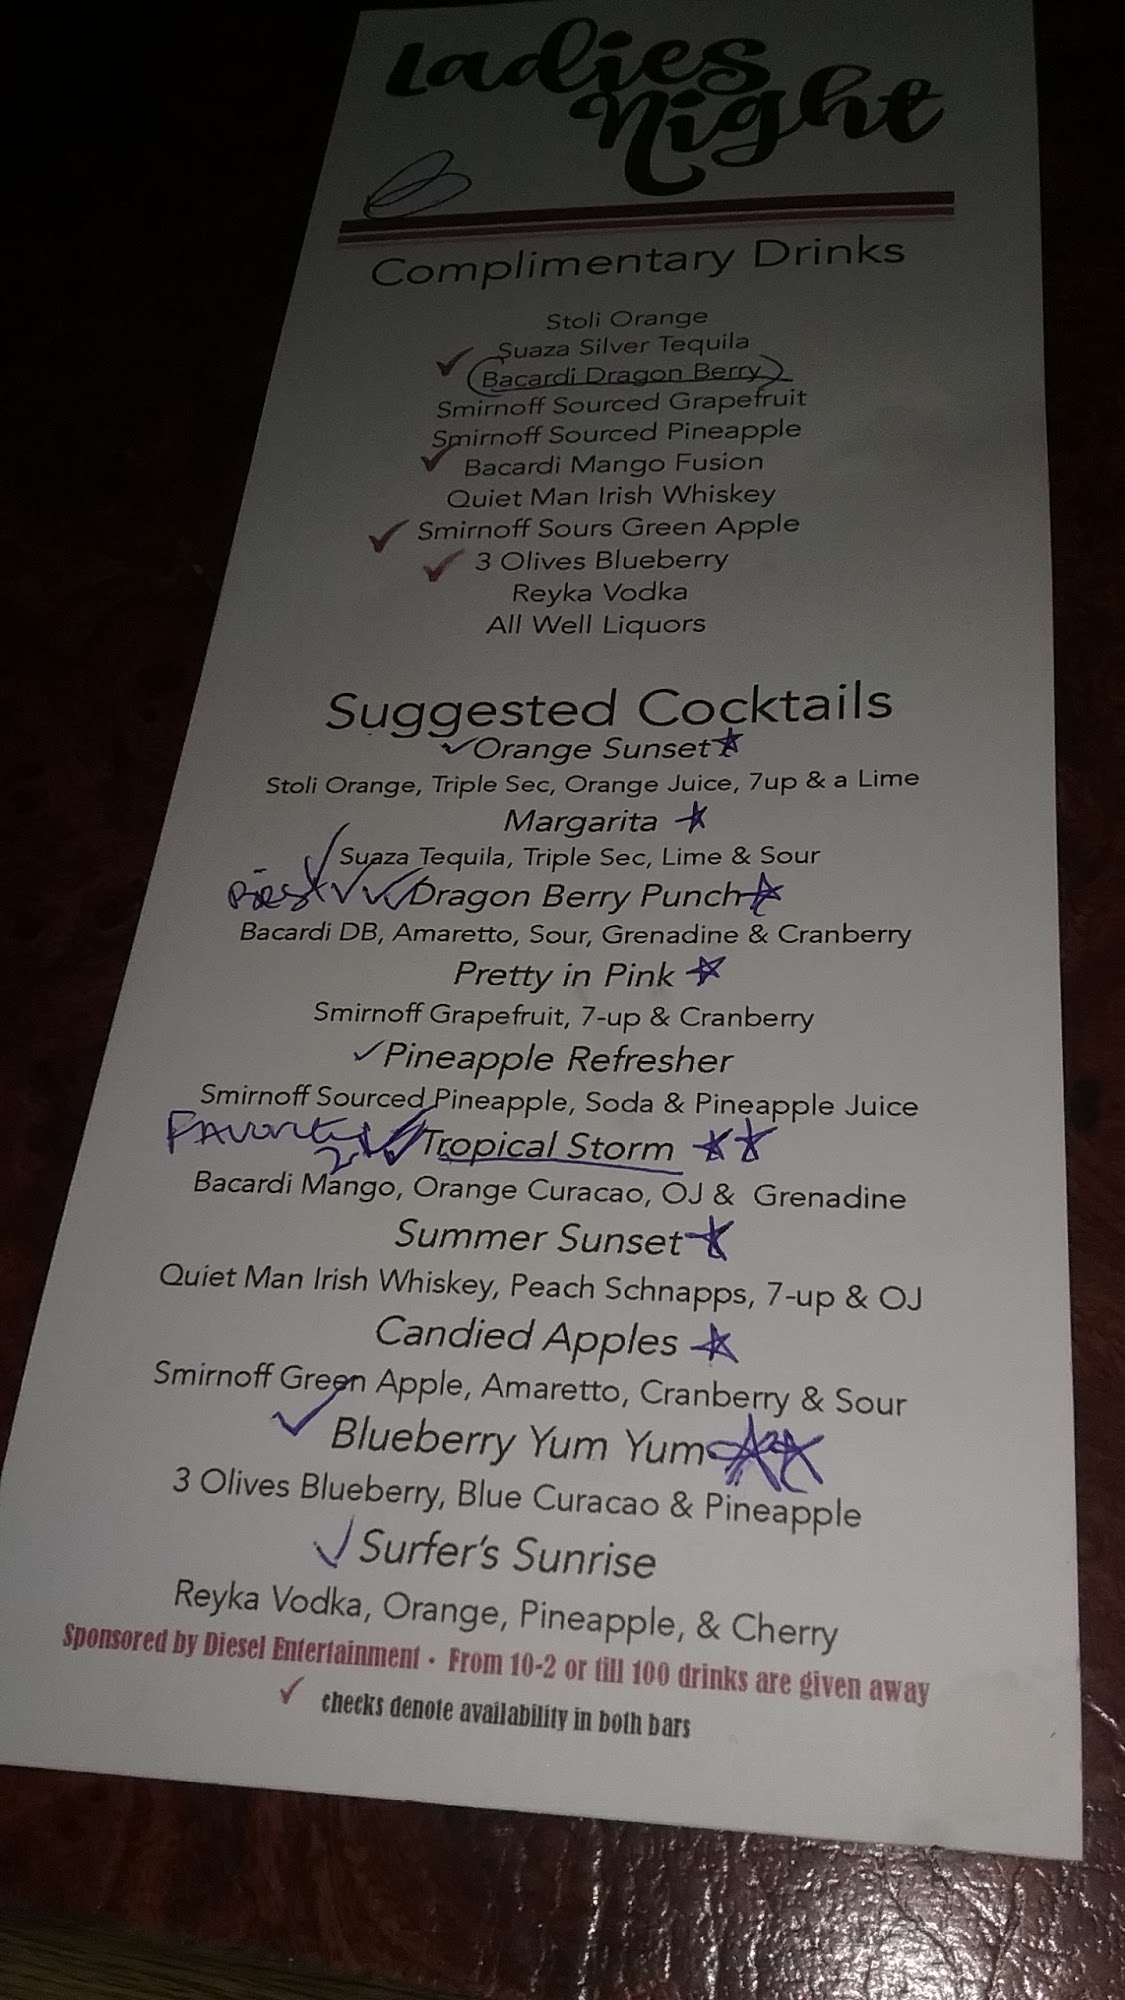 Ladies
Night
Complimentary Drinks
Stoli Orange
Suaza Silver Tequila
Bacardi Dragon Berry
Smirnoff Sourced Grapefruit
Smirnoff Sourced Pineapple
Bacardi Mango Fusion
Quiet Man Irish Whiskey
Smirnoff Sours Green Apple
3 Olives Blueberry
Reyka Vodka
All Well Liquors
Suggested Cocktails
Orange Sunset
Stoli Orange, Triple Sec, Orange Juice, 7up & a Lime
Margarita
Suaza Tequila, Triple Sec, Lime & Sour
Dragon Berry Punch
Bacardi DB, Amaretto, Sour, Grenadine & Cranberry
Pretty in Pink
Smirnoff Grapefruit, 7-up & Cranberry
Pineapple Refresher
Smirnoff Sourced Pineapple, Soda & Pineapple Juice
Favorite Tropical Storm
Bacardi Mango, Orange Curacao, OJ & Grenadine
Summer Sunset
Quiet Man Irish Whiskey, Peach Schnapps, 7-up & OJ
Candied Apples
Smirnoff Green Apple, Amaretto, Cranberry & Sour
Blueberry Yum Yum
3 Olives Blueberry, Blue Curacao & Pineapple
Surfer's Sunrise
Reyka Vodka, Orange, Pineapple, & Cherry
Sponsored by Diesel Entertainment · From 10-2 or till 100 drinks are given away
checks denote availability in both bars